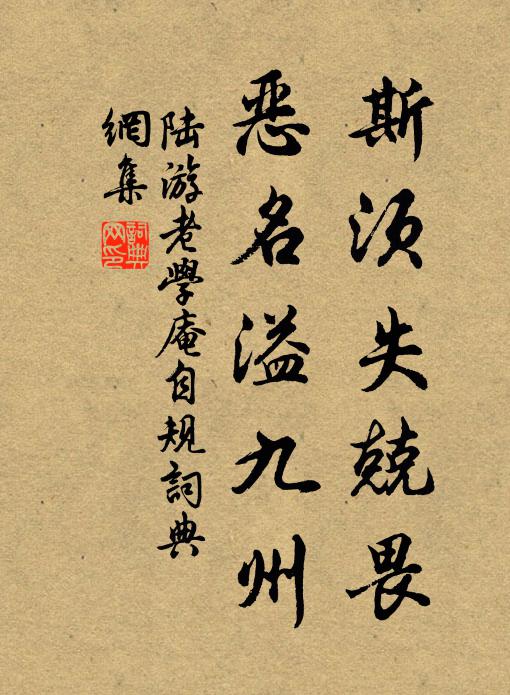 斯須失兢畏
惡名溢九州
陆游老學庵自規詞典
網集
詞典
网印